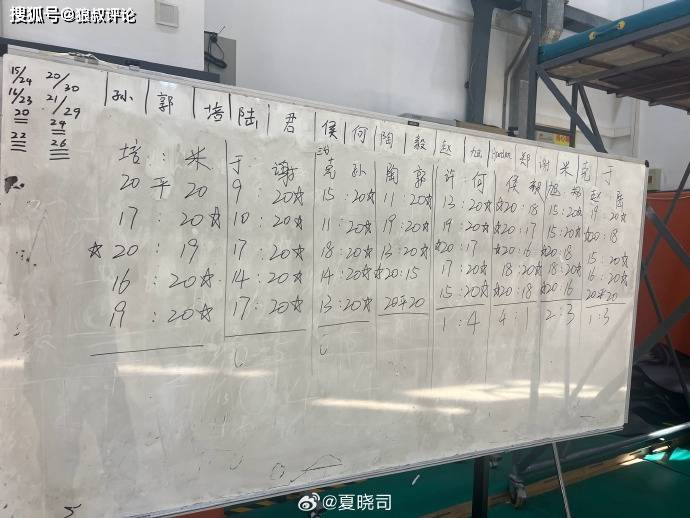 搜狐号@狼叔评论
15/24 20/30
16/23 21/29
20 24
22 26
孙 郭 培 陆 君 侯 何 陶 毅 赵 旭 Gordon 郑 谢 米 克 于
培 : 米 于 : 谢 克 孙 陶 郭 许 : 何 侯 赵 陆
20 平 20 9 : 20☆ 15 : 20☆ 11 : 20☆ 12 : 20☆ ☆20 : 18 15 : 20☆ 19 : 20☆
17 : 20☆ 10 : 20☆ 11 : 20☆ 19 : 20☆ 19 : 20☆ ☆20 : 17 15 : 20☆ ☆20 : 18
☆20 : 19 17 : 20☆ 18 : 20☆ 13 : 20☆ ☆20 : 17 ☆20 : 16 ☆20 : 18 15 : 20☆
16 : 20☆ 14 : 20☆ 14 : 20☆ ☆20 : 15 17 : 20☆ 18 : 20☆ 18 : 20☆ 16 : 20☆
19 : 20☆ 17 : 20☆ 13 : 20☆ 20平20 15 : 20☆ ☆20 : 18 ☆20 : 16 20平20
1 : 4 4 : 1 2 : 3 1 : 3
@夏晓司